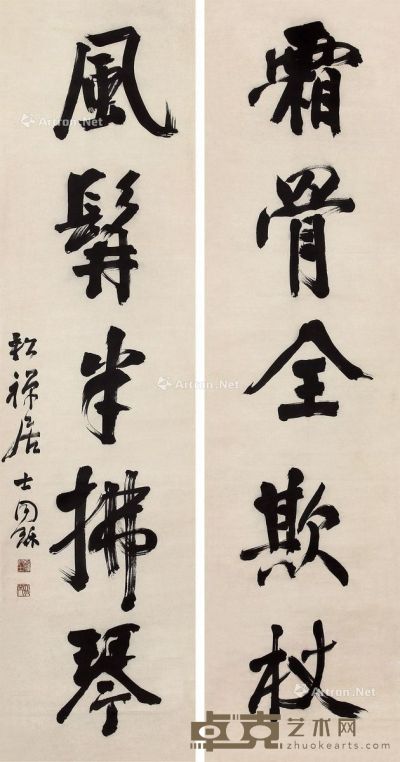 霜骨全欺杖
風髯半拂琴
松禪居士同龢
Artron.Net
Artron.Net
Artron.Net
Artron.Net
卓克艺术网
zhuokearts.com